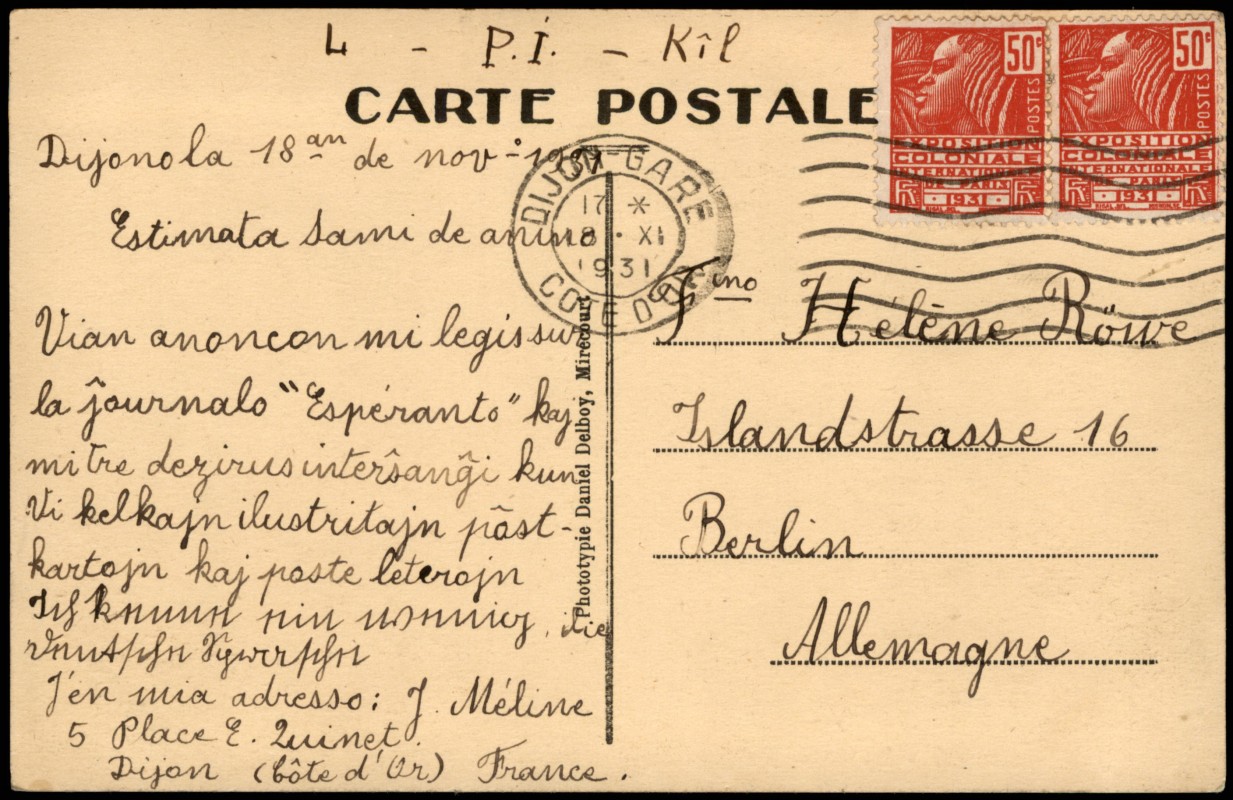 4 - P.I. - Kîl
CARTE POSTALE
50c
POSTES
EXPOSITION
COLONIALE
INTERNATIONALE
DE PARIS
RF 1931
50c
POSTES
EXPOSITION
COLONIALE
INTERNATIONALE
DE PARIS
RF 1931
DIJON-GARE
17 *
18 · XI
1931
COTE D'OR
Dijono la 18an de nov. 1931
Estimata samideanino
Vian anoncon mi legis sur
la ĵournalo "Espéranto" kaj
mi tre dezirus interŝanĝi kun
Vi kelkajn ilustritajn pôst-
kartojn kaj poste leterojn
Ich kenne ein wenig, die
deutsche Sprache
J'en mia adresso: J. Méline
5 Place E. Quinet
Dijon (Côte d'Or) France.
Phototypie Daniel Delboy, Mirecourt
Fino Hélène Röwe
Islandstrasse 16
Berlin
Allemagne